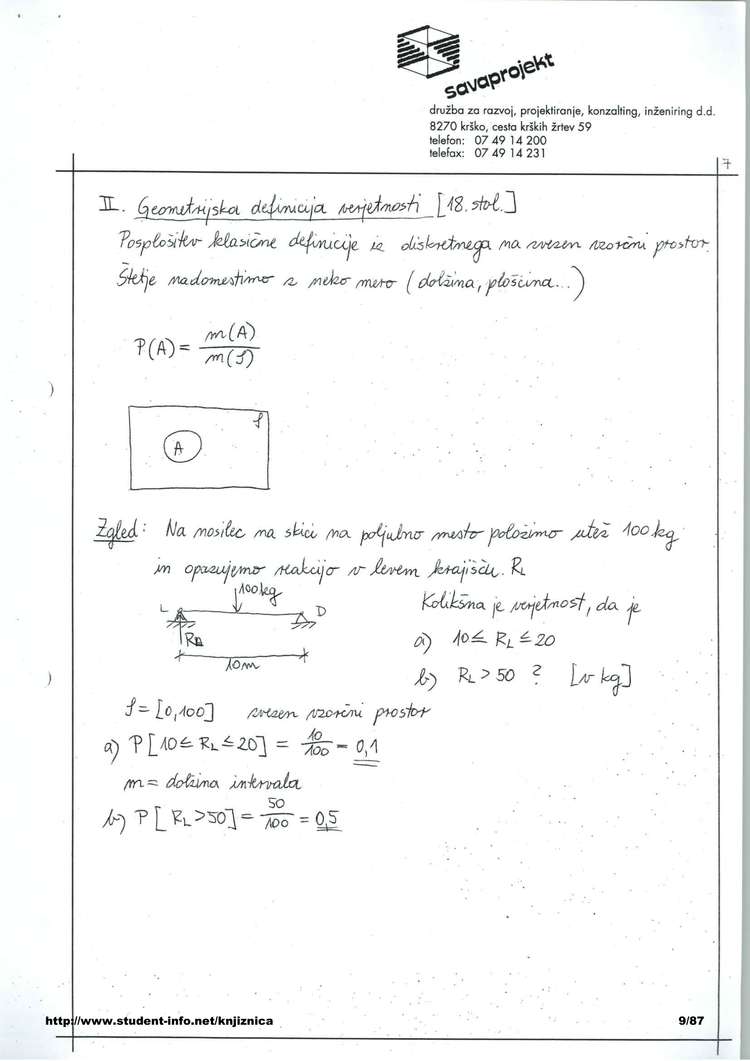 savaprojekt
družba za razvoj, projektiranje, konzalting, inženiring d.d.
8270 krško, cesta krških žrtev 59
telefon: 07 49 14 200
telefax: 07 49 14 231
7
II. Geometrijska definicija verjetnosti [18. stol.]
Posplošitev klasične definicije iz diskretnega na zvezen vzorčni prostor.
Štetje nadomestimo z neko mero (dolžina, ploščina...)
P(A) = m(A) / m(S)
S
A
Zgled: Na nosilec na skici na poljubno mesto položimo utež 100 kg
in opazujemo reakcijo v levem krajišču. RL
100 kg
L
D
10 m
Kolikšna je verjetnost, da je
a) 10 ≤ RL ≤ 20
b) RL > 50 ? [v kg]
S = [0,100] zvezen vzorčni prostor
a) P[10 ≤ RL ≤ 20] = 10/100 = 0,1
m = dolžina intervala
b) P[RL > 50] = 50/100 = 0,5
http://www.student-info.net/knjiznica
9/87